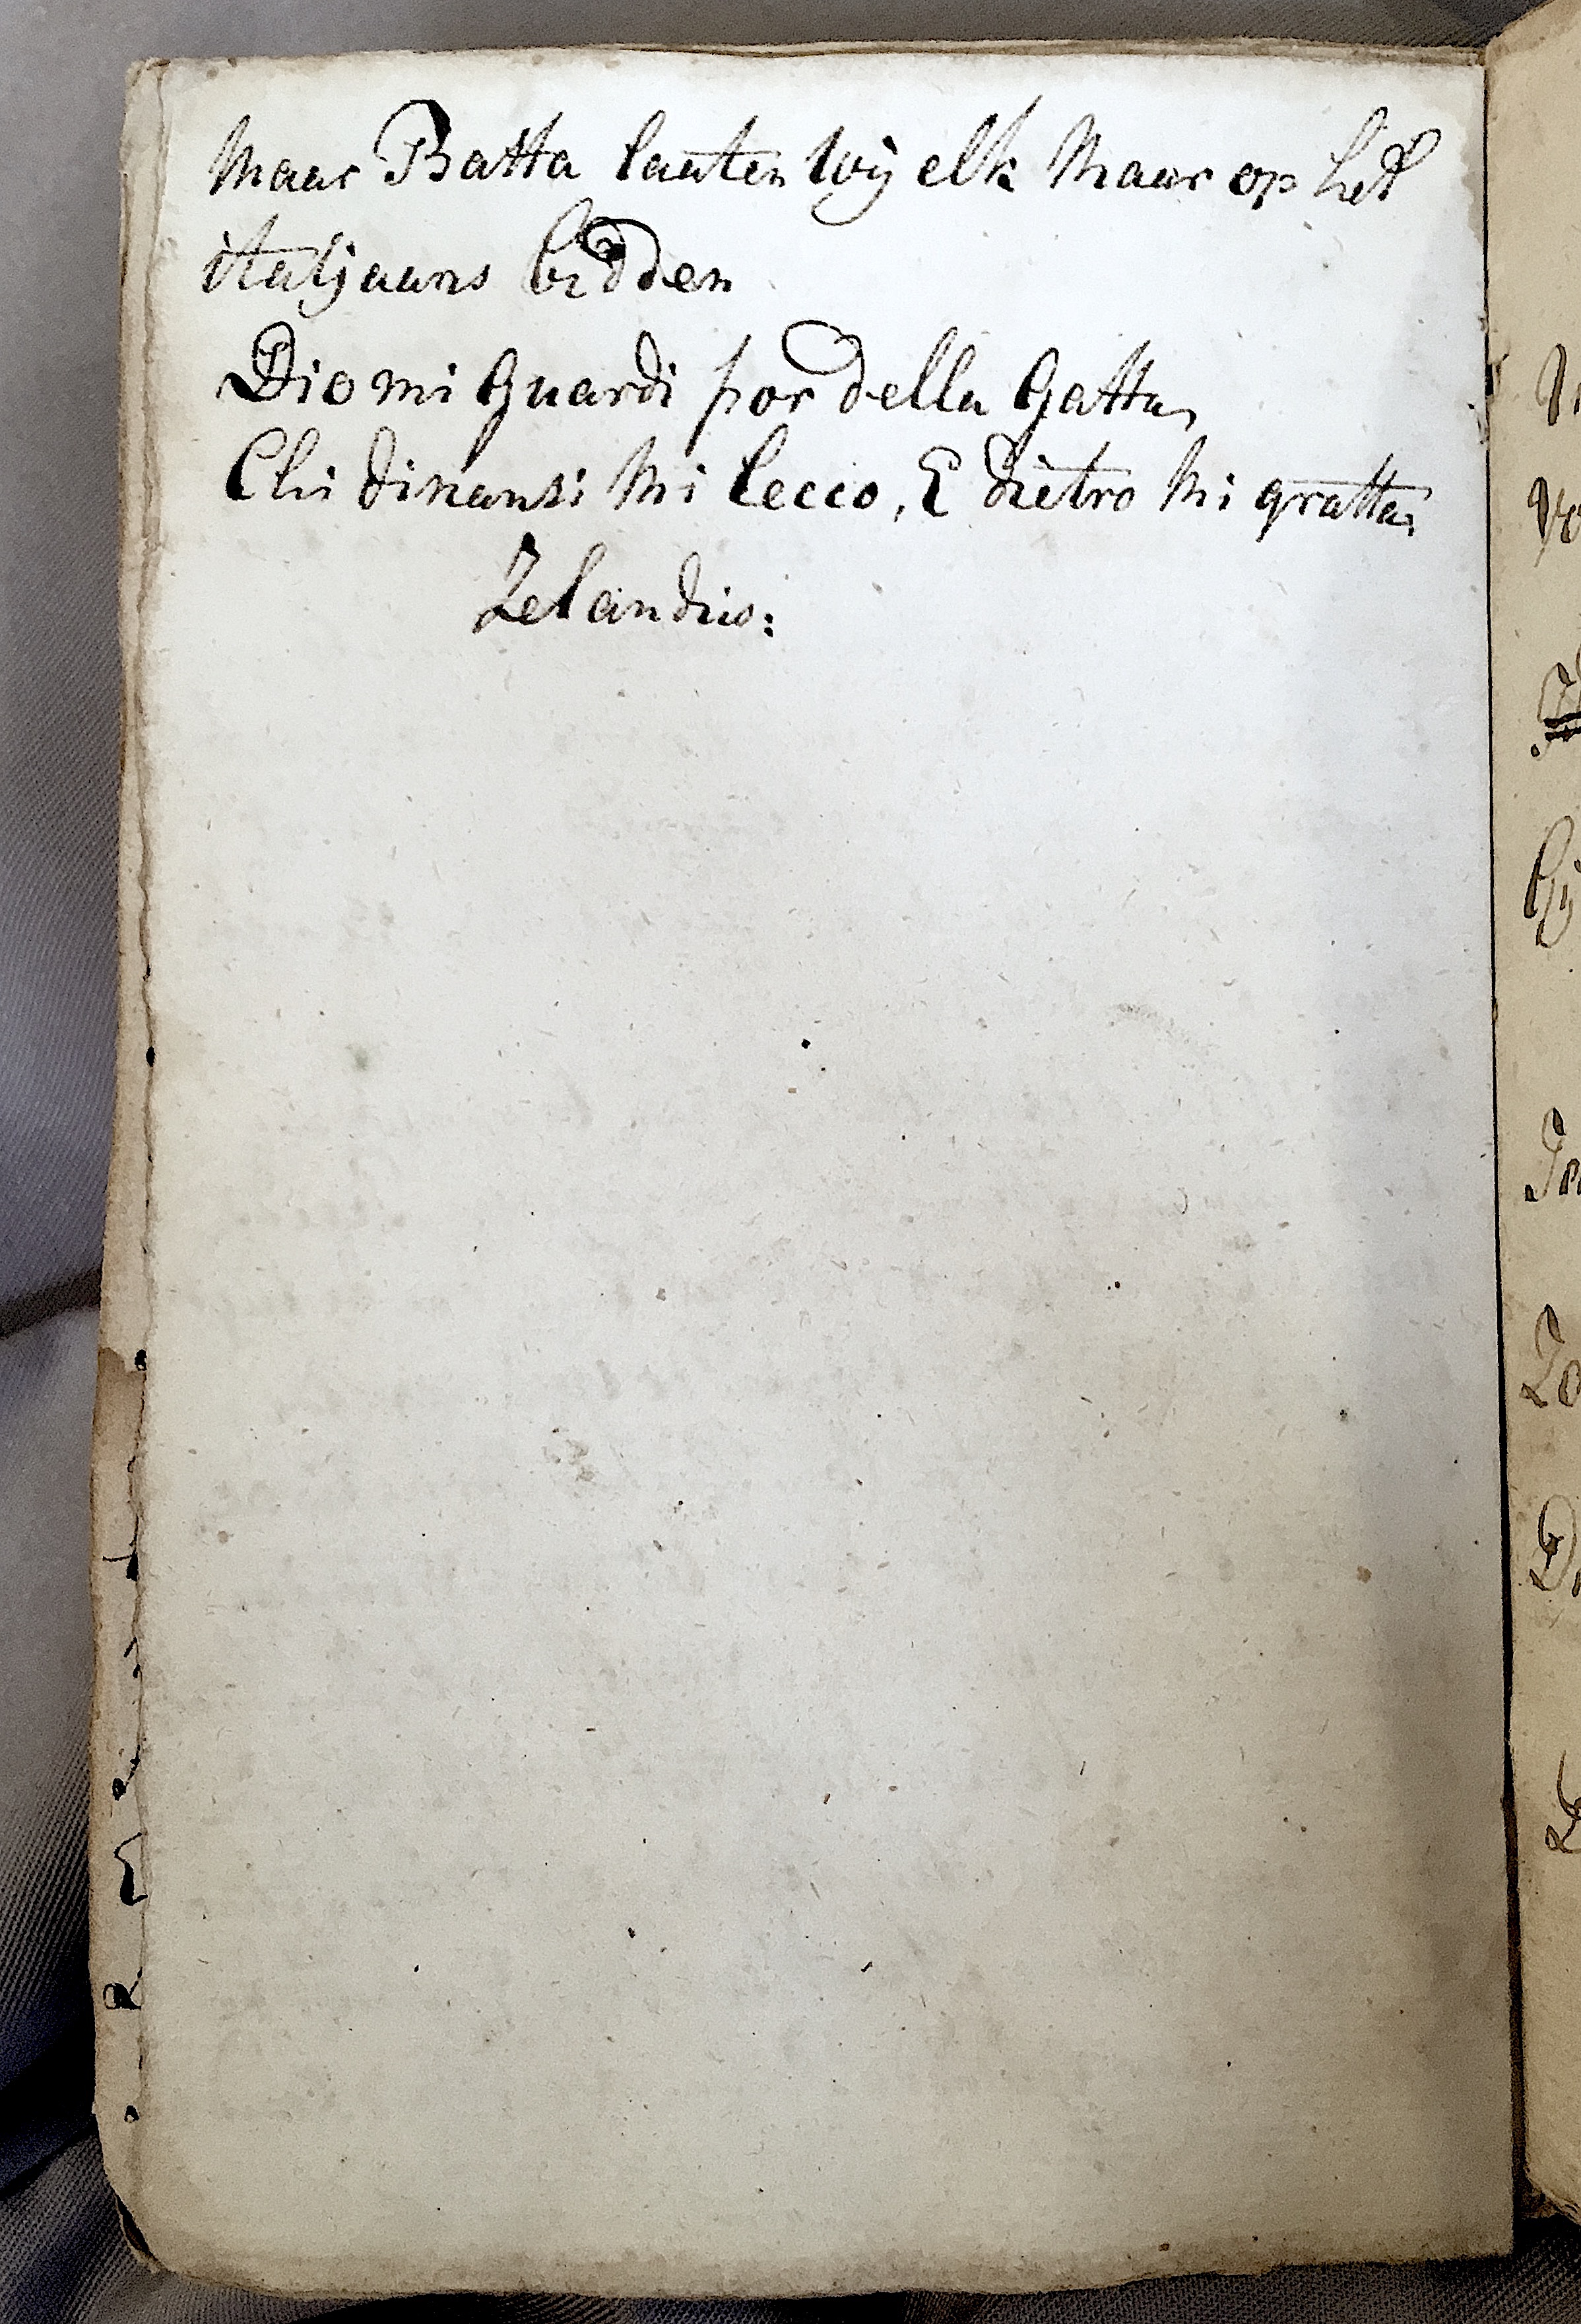 Maar Batta lauten wij elk Maar op het
italjaans bidden
Dio mi Guardi por della Gatta,
Chi dinansi Mi lecco, E dietro Mi gratta,
Zelandus: